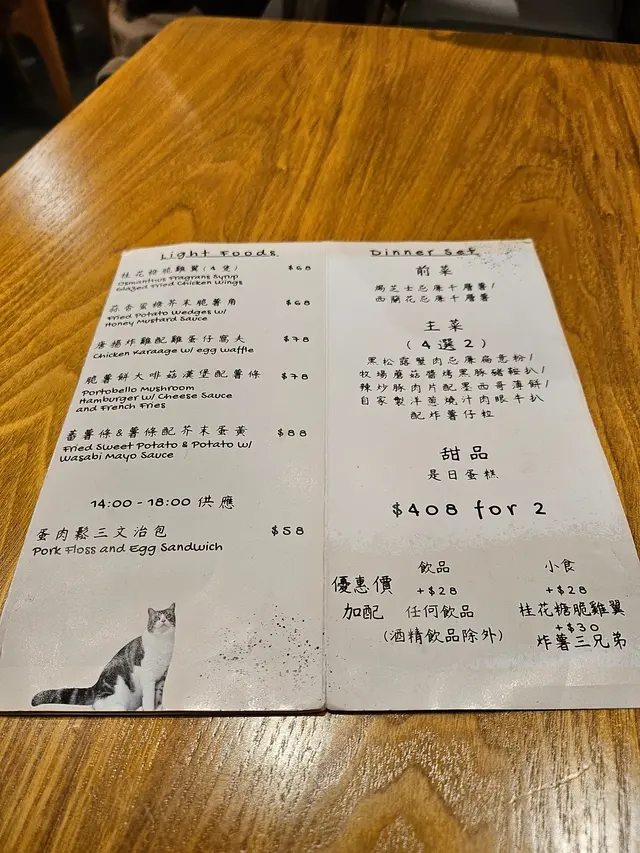 Light Foods
桂花糖脆雞翼(4隻) $68
Osmanthus Fragrans Syrup
Glazed Fried Chicken Wings
蒜香蜜糖芥末脆薯角 $68
Fried Potato Wedges w/
Honey Mustard Sauce
唐揚炸雞配雞蛋仔窩夫 $78
Chicken Karaage w/ egg Waffle
脆薯餅大啡菇漢堡配薯條 $78
Portobello Mushroom
Hamburger w/ Cheese Sauce
and French Fries
蕃薯條&薯條配芥末蛋黃 $88
Fried Sweet Potato & Potato w/
Wasabi Mayo Sauce
14:00-18:00 供應
蛋肉鬆三文治包 $58
Pork Floss and Egg Sandwich
Dinner Set
前菜
焗芝士忌廉千層薯/
西蘭花忌廉千層薯
主菜
(4選2)
黑松露蟹肉忌廉扁意粉/
牧場蘑菇醬烤黑豚豬鞍扒/
辣炒豚肉片配墨西哥薄餅/
自家製洋蔥燒汁肉眼牛扒
配炸薯仔粒
甜品
是日蛋糕
$408 for 2
飲品 小食
優惠價 +$28 +$28
加配 任何飲品 桂花糖脆雞翼
(酒精飲品除外) +$30
炸薯三兄弟